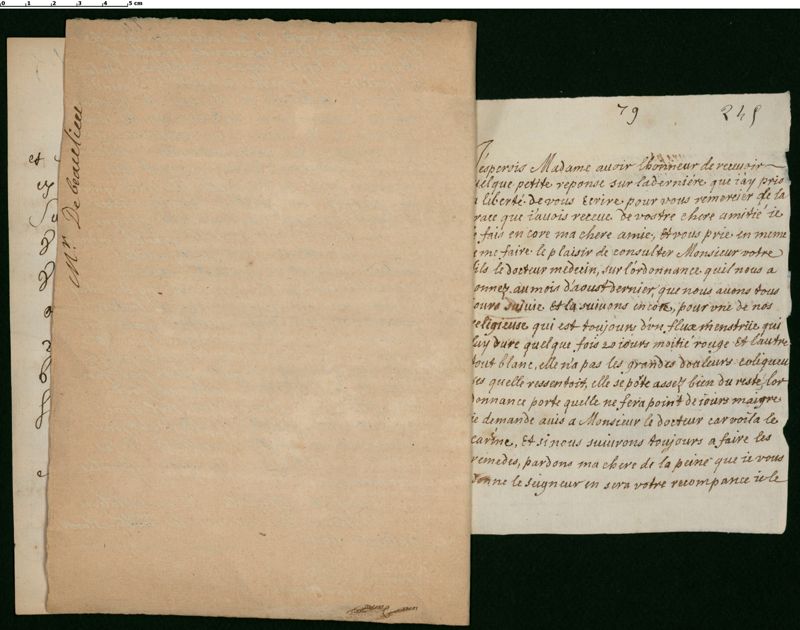 0 1 2 3 4 5 cm
Mr. De beaulieu
79 245
Jesperois Madame avoir lhonneur de recevoir
uelque petite reponse sur laderniére que iay pris
a liberté de vous Ecrire pour vous remercier de la
race que iavois receue de vostre chere amitié ie
e fais encore ma chere amie, et vous prie en meme
e me faire le plaisir de consulter Monsieur votre
fils le docteur medecin, sur lordonnance quil nous a
onnez au mois d'aoust dernier, que nous avons tous
iours suivie et la suivons encore, pour vne de nos
religieuse qui est toujours d'vn flux menstrüe qui
luy dure quelque fois 20 iours moitié rouge et lautre
tout blanc, elle n'a pas les grandes douleurs coliqueu
ses quelle ressentoit, elle se pôte assez bien du reste, lor
donnance porte quelle ne fera point de iours maigre
ie demande avis a Monsieur le docteur car voila le
carême, et si nous suivrons toujours a faire les
remedes, pardons ma chere de la peine que ie vous
donne le seigneur en sera votre recompance ie le